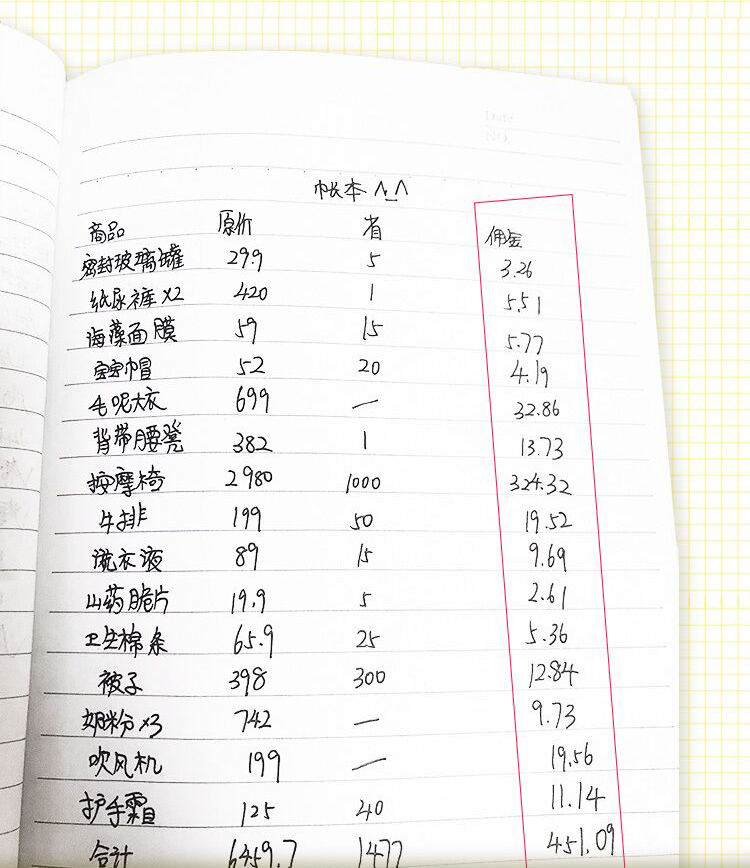 Date
NO.
帐本 ^_^
商品 原价 省 佣金
密封玻璃罐 29.9 5 3.26
纸尿裤×2 420 1 5.51
海藻面膜 59 15 5.77
宝宝巾冒 52 20 4.19
毛呢大衣 699 — 32.86
背带腰凳 382 1 13.73
按摩椅 2980 1000 324.32
牛排 199 50 19.52
洗衣液 89 15 9.69
山药脆片 19.9 5 2.61
卫生棉条 65.9 25 5.36
被子 398 300 12.84
奶粉×3 742 — 9.73
吹风机 199 — 19.56
护手霜 125 40 11.14
合计 6459.7 1477 451.09